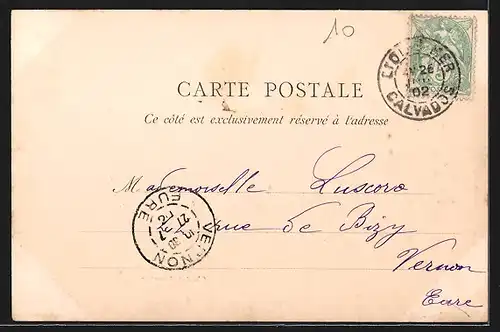 10
LION-S-MER
26
02
CALVADOS
CARTE POSTALE
Ce côté est exclusivement réservé à l'adresse
Mademoiselle Luscoro
rue de Bizy
Vernon
Eure
VERNON
EURE